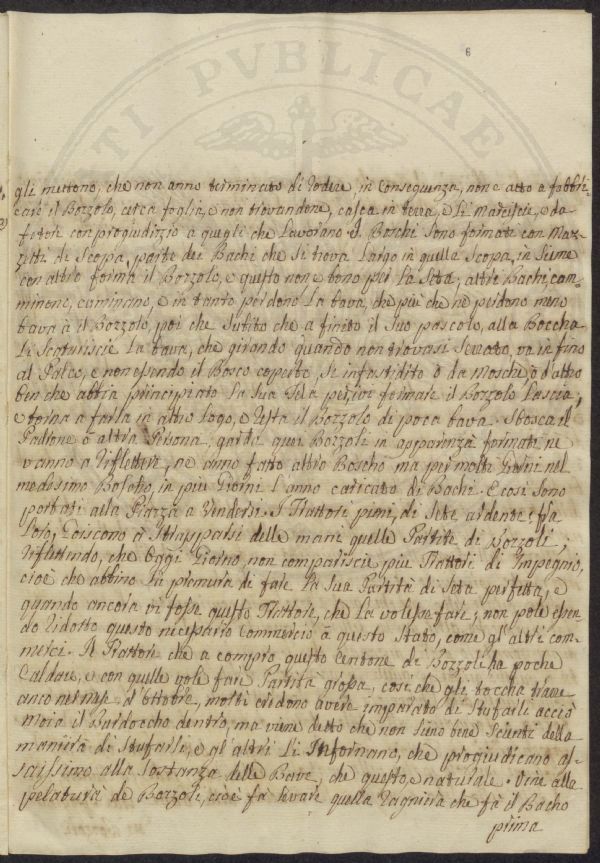 TI PVBLICAE
6
gli mettono, che non anno terminato di Vedere, in Conseguenza, non e atto a fabbri=
care il Bozzolo, cerca foglia, e non trovandone, casca in terra, e Li Marciscie, e da
fetore con progiudizio a quegli che Lavorano. I Boschi Sono formati con Maz=
zetti di Scopa, parte dei Bachi che si trova Largo in quella Scopa, in Sieme
con altro forma il Bozzolo, e questo non e bono per La Seta, altri Bachi cam=
minono, caminano, e in tanto perdono La bava, che più che ne perdono meno
bava à il Bozzolo, poi che Subito che a finito il Suo pascolo, alla Boccha
Li Scaturiscie La bava, che girando quando non trovasi Serrato, va in fino
al Palco, e non essendo il Bosco coperto, Si infastidito ò da Mosche, ò d'altro
ben che abbia principiato La Sua Tela per ivi formare il Bozzolo Lascia,
e torna a farla in altro Logo, e resta il Bozzolo di poca bava. Sbosca il
Padrone ò altra Persona, guarda quei Bozzoli in apparenza formati ne
vanno a riflettere, ne anno fatto altro Boscho ma per molti Giorni nel
medesimo Boscho in più Giorni L'anno caricato di Bachi. E cosi Sono
portati alla Piazza a Vendersi. I Trattori pieni, di Sete ardente, fra
Loro, Pariscono à Strapparsi delle mani quelle Partite di Bozzoli;
riflettendo, che Oggi Giorno, non compariscie più Trattori di Impegnio,
cioè che abbino La premura di fare La Sua Partita di Seta perfetta, e
quando ancora vi fosse questo Trattore, che La volesse fare, non pole essen
do ridotto questo necessario Commercio à questo Stato, come gl'altri com=
merci. Il Trattore che a compro, questo Centone di Bozzoli ha poche
Caldare, e con quelle vole fare Partita grossa, così che gli toccha trarre
anco nel mese d'Ottobre, molti credono avere imparato di Stufarli acciò
mora il Burdoccho dentro, ma viene detto che non Sino bene Scienti della
maniera di Stufarli, e gl'altri Li Infornano, che progiudicano as=
saissimo alla Sostanza delle Bave, che questo è naturale. Viene alla
pelatura de Bozzoli, cioè fà levare quella ragniera che fà il Bacho
prima